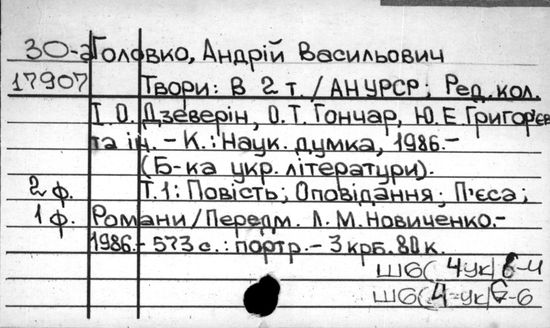 30-а Головко, Андрій Васильович
17907 Твори: В 2 т. / АН УРСР; Ред. кол.
І. О. Дзеверін, О. Т. Гончар, Ю. Е. Григор'єв
та ін. - К.: Наук. думка, 1986.-
(Б-ка укр. літератури).
2 ф. Т.1: Повість; Оповідання; П'єса;
1 ф. Романи / Передм. Л. М. Новиченко.-
1986.- 573 с.: портр.- 3 крб. 80 к.
Ш6(4ук)6-4
Ш6(4=ук)6-6